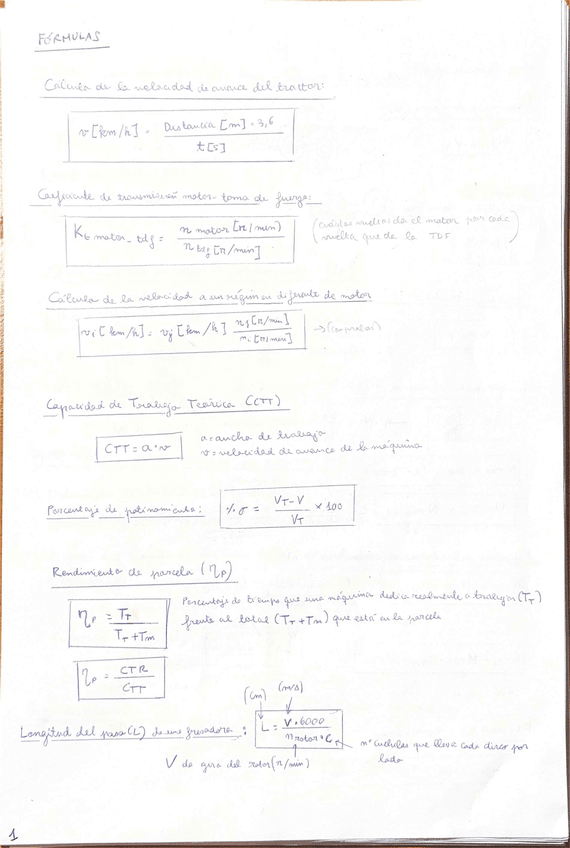 FÓRMULAS
Cálculo de la velocidad de avance del tractor:
v [km/h] = Distancia [m] · 3,6 / t [s]
Coeficiente de transmisión motor-toma de fuerza:
Kt motor-tdf = n motor [r/min] / n tdf [r/min]
(cuántas vueltas da el motor por cada
vuelta que da la TDF)
Cálculo de la velocidad a un régimen diferente de motor
vi [km/h] = vj [km/h] nj [r/min] / ni [r/min] → (comprobar)
Capacidad de Trabajo Teórica (CTT)
CTT = a · v
a = ancho de trabajo
v = velocidad de avance de la máquina
Porcentaje de patinamiento: % σ = VT - V / VT × 100
Rendimiento de parcela (ηp)
ηp = TT / TT + Tm
Porcentaje de tiempo que una máquina dedica realmente a trabajar (TT)
frente al total (TT + Tm) que está en la parcela
ηp = CTR / CTT
(cm) (m/s)
Longitud del paso (L) de una fresadora: L = V · 6000 / n rotor · C
nº cuchillas que lleva cada disco por
lado
V de giro del rotor (r/min)
1